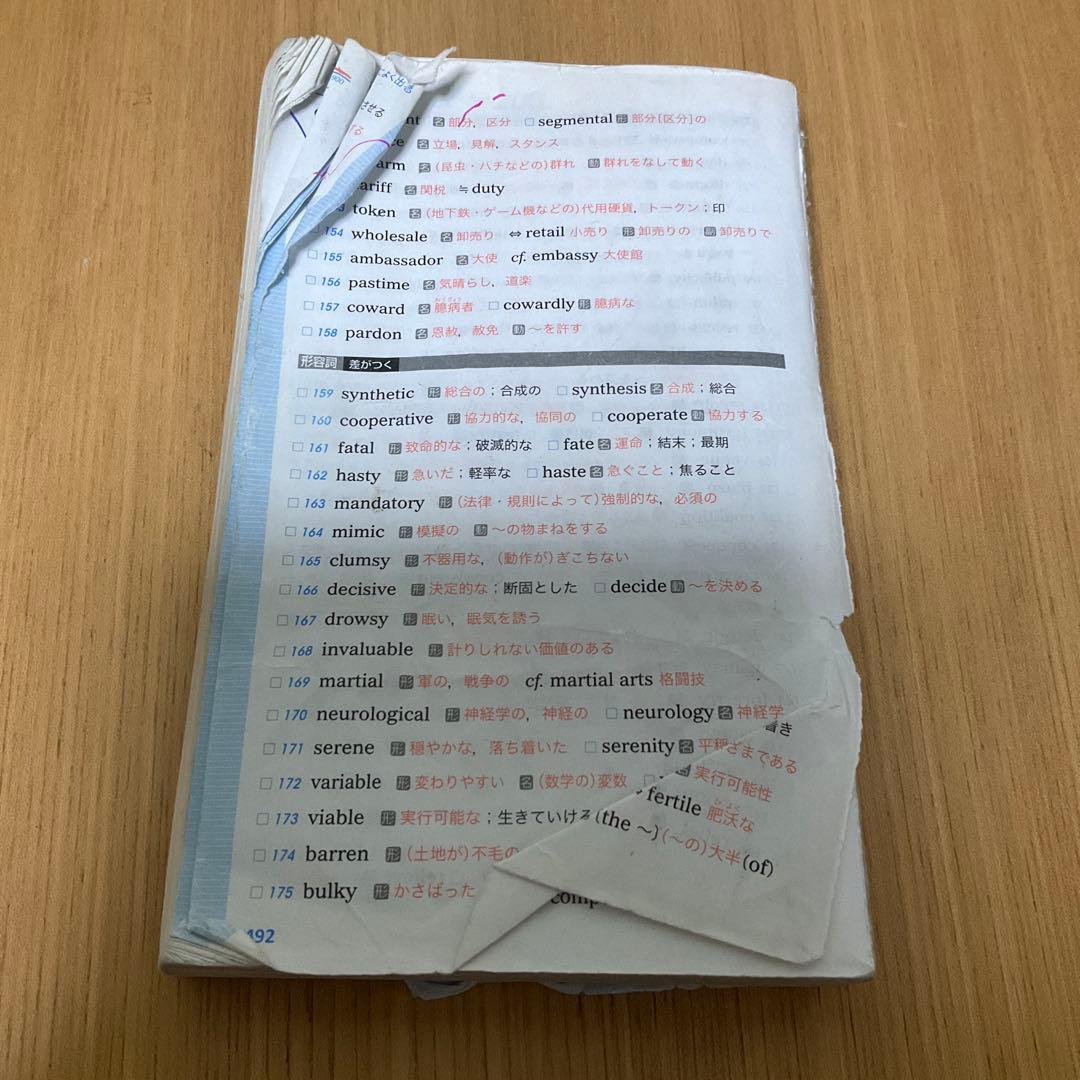 よく出る
させる
る
nt 名 部分，区分 □ segmental 形 部分[区分]の
ce 名 立場，見解，スタンス
arm 名 (昆虫・ハチなどの)群れ 動 群れをなして動く
tariff 名 関税 ≒ duty
token 名 (地下鉄・ゲーム機などの)代用硬貨，トークン；印
154 wholesale 名 卸売り ⇔ retail 小売り 形 卸売りの 副 卸売りで
□ 155 ambassador 名 大使 cf. embassy 大使館
□ 156 pastime 名 気晴らし，道楽
□ 157 coward 名 臆病者 □ cowardly 形 臆病な
□ 158 pardon 名 恩赦，赦免 動 〜を許す
形容詞 差がつく
□ 159 synthetic 形 総合の；合成の □ synthesis 名 合成；総合
□ 160 cooperative 形 協力的な，協同の □ cooperate 動 協力する
□ 161 fatal 形 致命的な；破滅的な □ fate 名 運命；結末；最期
□ 162 hasty 形 急いだ；軽率な □ haste 名 急ぐこと；焦ること
□ 163 mandatory 形 (法律・規則によって)強制的な，必須の
□ 164 mimic 形 模擬の 動 〜の物まねをする
□ 165 clumsy 形 不器用な，(動作が)ぎこちない
□ 166 decisive 形 決定的な；断固とした □ decide 動 〜を決める
□ 167 drowsy 形 眠い，眠気を誘う
□ 168 invaluable 形 計りしれない価値のある
□ 169 martial 形 軍の，戦争の cf. martial arts 格闘技
□ 170 neurological 形 神経学の，神経の □ neurology 名 神経学
□ 171 serene 形 穏やかな，落ち着いた □ serenity 名 平穏
□ 172 variable 形 変わりやすい 名 (数学の)変数
□ 173 viable 形 実行可能な；生きていける
□ 174 barren 形 (土地が)不毛の
□ 175 bulky 形 かさばった
ざまである
名 実行可能性
fertile 肥沃な
(the 〜) (〜の)大半 (of)
comp
492